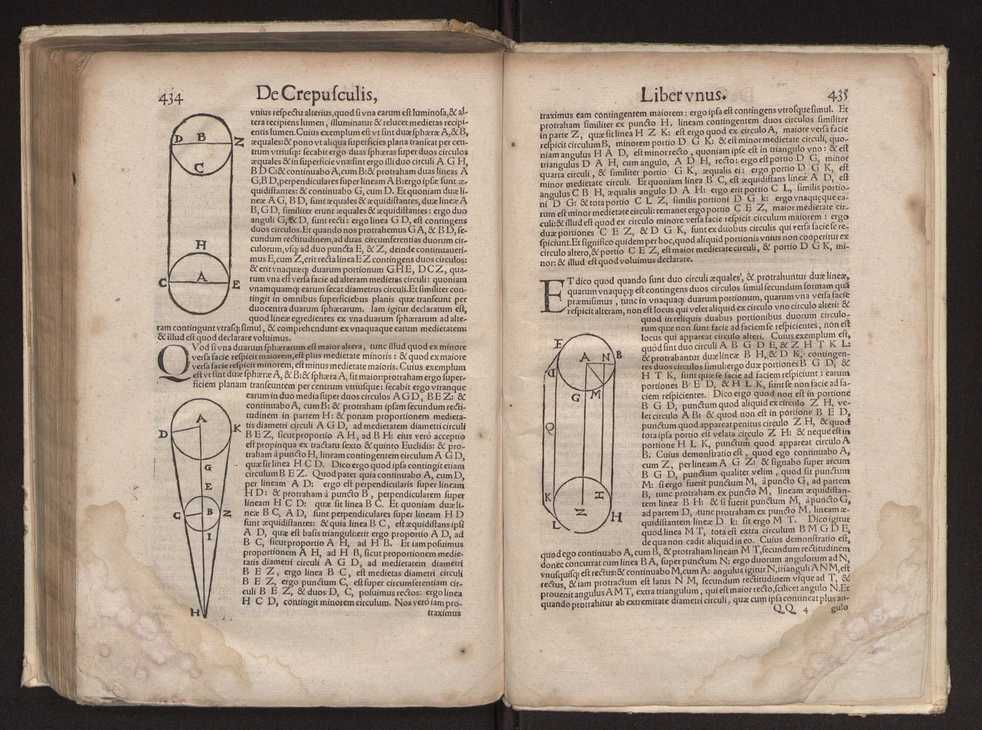 434 De Crepusculis,
vnius respectu alterius, quod si vna earum est luminosa, & al-
tera recipiens lumen, illuminatur & relucet medietas recipi-
entis lumen. Cuius exemplum est vt sint duæ sphæræ A, & B,
æquales: & pono vt aliqua superficies plana transeat per cen-
trum vtriusq;: secabit ergo duas sphæras super duos circulos
æquales & in superficie vna: sint ergo illi duo circuli A G H,
B D C: & continuabo A, cum B: & protraham duas lineas A
G, B D, perpendiculares super lineam A B: ergo ipsæ sunt æ-
quidistantes: & continuabo G, cum D. Et quoniam duæ li-
neæ A G, B D, sunt æquales & æquidistantes, duæ lineæ A
B, G D, similiter erunt æquales & æquidistantes: ergo duo
anguli G, & D, sunt recti: ergo linea G D, est contingens
duos circulos. Et quando nos protrahemus G A, & B D, se-
cundum rectitudinem, ad duas circumferentias duorum cir-
culorum, vsq; ad duo puncta E, & Z, deinde continuaueri-
mus E, cum Z, erit recta linea E Z contingens duos circulos:
& erit vnaquæq; duarum portionum G H E, D C Z, qua-
rum vna est versa facie ad alteram medietas circuli: quoniam
vnamquamq; earum secat diametrus circuli. Et similiter con-
tingit in omnibus superficiebus planis quæ transeunt per
duo centra duarum sphærarum. Iam igitur declaratum est,
quod lineæ egredientes ex vna duarum sphærarum ad alte-
ram contingunt vtrasq; simul, & comprehendunt ex vnaquaque earum medietatem:
& illud est quod declarare voluimus.
QVod si vna duarum sphærarum est maior altera, tunc illud quod ex minore
versa facie respicit maiorem, est plus medietate minoris: & quod ex maiore
versa facie respicit minorem, est minus medietate maioris. Cuius exemplum
est vt sint duæ sphæræ A, & B: & sphæra A, sit maior: protraham ergo super-
ficiem planam transeuntem per centrum vtriusque: secabit ergo vtranque
earum in duo media super duos circulos A G D, B E Z: &
continuabo A, cum B: & protraham ipsam secundum recti-
tudinem in partem H: & ponam proportionem medieta-
tis diametri circuli A G D, ad medietatem diametri circuli
B E Z, sicut proportio A H, ad B H: eius verò acceptio
est propinqua ex tractatu sexto & quinto Euclidis: & pro-
traham à puncto H, lineam contingentem circulum A G D,
quæ sit linea H C D. Dico ergo quod ipsa contingit etiam
circulum B E Z. Quod patet quia continuabo A, cum D,
per lineam A D: ergo est perpendicularis super lineam
H D: & protraham à puncto B, perpendicularem super
lineam H C D: quæ sit linea B C. Et quoniam duæ li-
neæ B C, A D, sunt perpendiculares super lineam H D
sunt æquidistantes: & quia linea B C, est æquidistans ipsi
A D, quæ est basis trianguli: erit ergo proportio A D, ad
B C, sicut proportio A H, ad H B. Et iam posuimus
proportionem A H, ad H B, sicut proportionem medie-
tatis diametri circuli A G D, ad medietatem diametri
B E Z, ergo linea B C, est medietas diametri circuli
B E Z, ergo punctum C, est super circumferentiam cir-
culi B E Z, & duos D, C, posuimus rectos: ergo linea
H C D, contingit minorem circulum. Nos verò iam pro-
traximus
D B Z
C
H
C A E
A
D K
G
E
C B Z
I
H
Liber vnus. 435
traximus eam contingentem maiorem: ergo ipsa est contingens vtrosque simul. Et
protraham similiter ex puncto H, lineam contingentem duos circulos similiter
in parte Z, quæ sit linea H Z K: est ergo quod ex circulo A, maiore versa facie
respicit circulum B, minorem portio D G K: & est minor medietate circuli, quo-
niam angulus H A D, est minor recto, quoniam ipse est in triangulo vno: & est
triangulus D A H, cum angulo, A D H, recto: ergo est portio D G, minor
quarta circuli, & similiter portio G K, æqualis ei: ergo portio D G K, est
minor medietate circuli. Et quoniam linea B C, est æquidistans lineæ A D, est
angulus C B H, æqualis angulo D A H: ergo erit portio C L, similis portio-
ni D G: & tota portio C L Z, similis portioni D G K: ergo vnaquæque ea-
rum est minor medietate circuli: remanet ergo portio C E Z, maior medietate cir-
culi: & illud est quod ex circulo minore versa facie respicit circulum maiorem: ergo
duæ portiones C E Z, & D G K, sunt ex duobus circulis qui versa facie se re-
spiciunt. Et significo quidem per hoc, quod aliquid portionis vnius non cooperitur ex
circulo altero, & portio C E Z, est maior medietate circuli, & portio D G K, mi-
nor: & illud est quod voluimus declarare.
ET dico quod quando sint duo circuli æquales, & protrahuntur duæ lineæ,
quarum vnaquæq; est contingens duos circulos simul secundum formam quã
præmisimus, tunc in vnaquaq; duarum portionum, quarum vna versa facie
respicit alteram, non est locus qui velet aliquid ex circulo vno circulo alteri: &
quod in reliquis duabus portionibus duorum circulo-
rum quæ non sunt facie ad faciem se respicientes, non est
locus qui appareat circulo alteri. Cuius exemplum est,
quod sint duo circuli A B G D E, & Z H T K L:
& protrahantur duæ lineæ B H, & D K, contingen-
tes duos circulos simul: ergo duæ portiones B G D, &
H T K, sunt quæ se facie ad faciem respiciunt: earum
portiones B E D, & H L K, sunt se non facie ad fa-
ciem respicientes. Dico ergo quod non est in portione
B G D, punctum quod aliquid ex circulo Z H, ve-
let circulo A B: & quod non est in portione B E D,
punctum quod appareat penitus circulo Z H, & quod
tota ipsa portio est velata circulo Z H: & neque est in
portione H L K, punctum quod appareat circulo A
B. Cuius demonstratio est, quod ego continuabo A,
cum Z, per lineam A G Z: & signabo super arcum
B G D, punctum qualiter velim, quod sit punctum
M: si ergo fuerit punctum M, à puncto G, ad partem
B, tunc protraham ex puncto M, lineam æquidistan-
tem lineæ B H: & si fuerit punctum M, à puncto G,
ad partem D, tunc protraham ex puncto M, lineam æ-
quidistantem lineæ D K: sit ergo M T. Dico igitur
quod linea M T, tota est extra circulum B M G D E,
& quia non cadit aliquid in eo. Cuius demonstratio est,
quod ego continuabo A, cum B, & protraham lineam M T, secundum rectitudinem
donec concurrat cum linea B A, super punctum N: ergo duorum angulorum ad N,
vnusquisq; est rectus: & continuabo M, cum A: angulus igitur N, trianguli A N M, est
rectus, & iam protractum est latus N M, secundum rectitudinem vsque ad T, &
prouenit angulus A M T, extra triangulum, qui est maior recto, scilicet angulo N. Et
quando protrahitur ab extremitate diametri circuli, quæ cum ipsa contineat plus an-
QQ 4 gulo
E A N B
D
G M
Q
K H
Z
L H